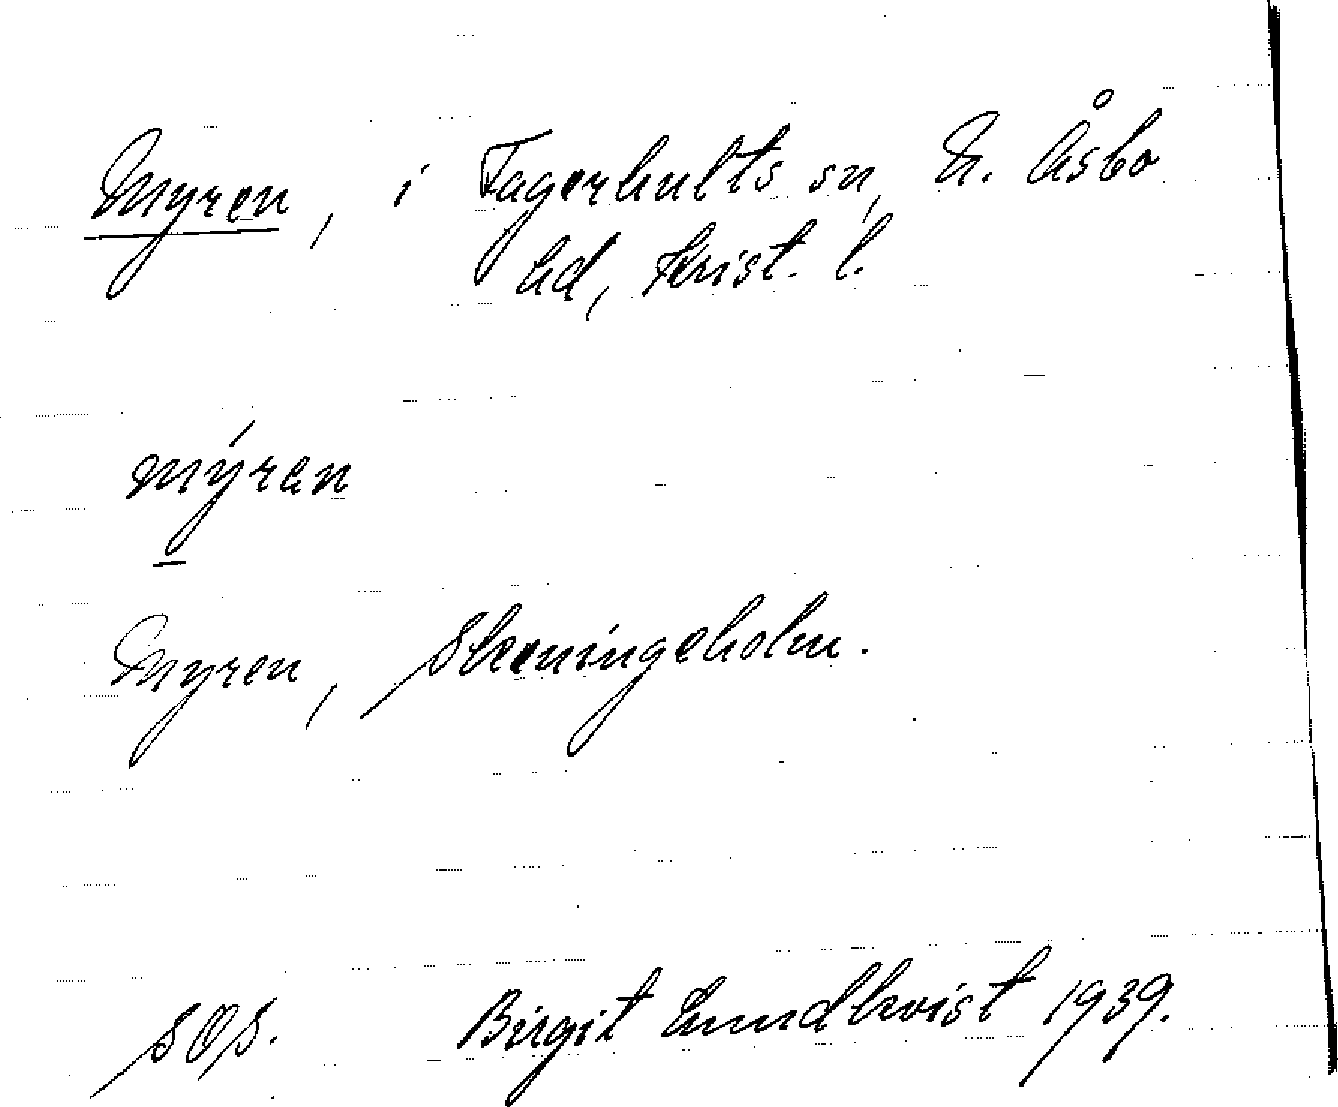 Myren, i Fagerhults sn, N. Åsbo
hd, Krist. l.
mýren
Myren, Skeningeholm.
SOS. Birgit Lundkvist 1939.